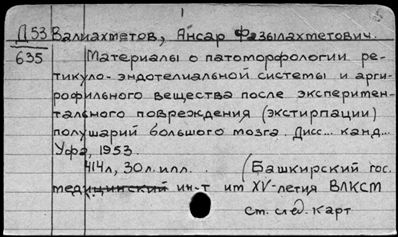 1
Д53 Валиахметов, Ансар Фазылахметович.
635 Материалы о патоморфологии ре-
тикуло-эндотелиальной системы и арги-
рофильного вещества после эксперимен-
тального повреждения (экстирпации)
полушарий большого мозга. Дисс... канд...
Уфа, 1953.
414л, 30л. илл. (Башкирский гос.
медицинский ин-т им XV-летия ВЛКСМ
См. след. карт